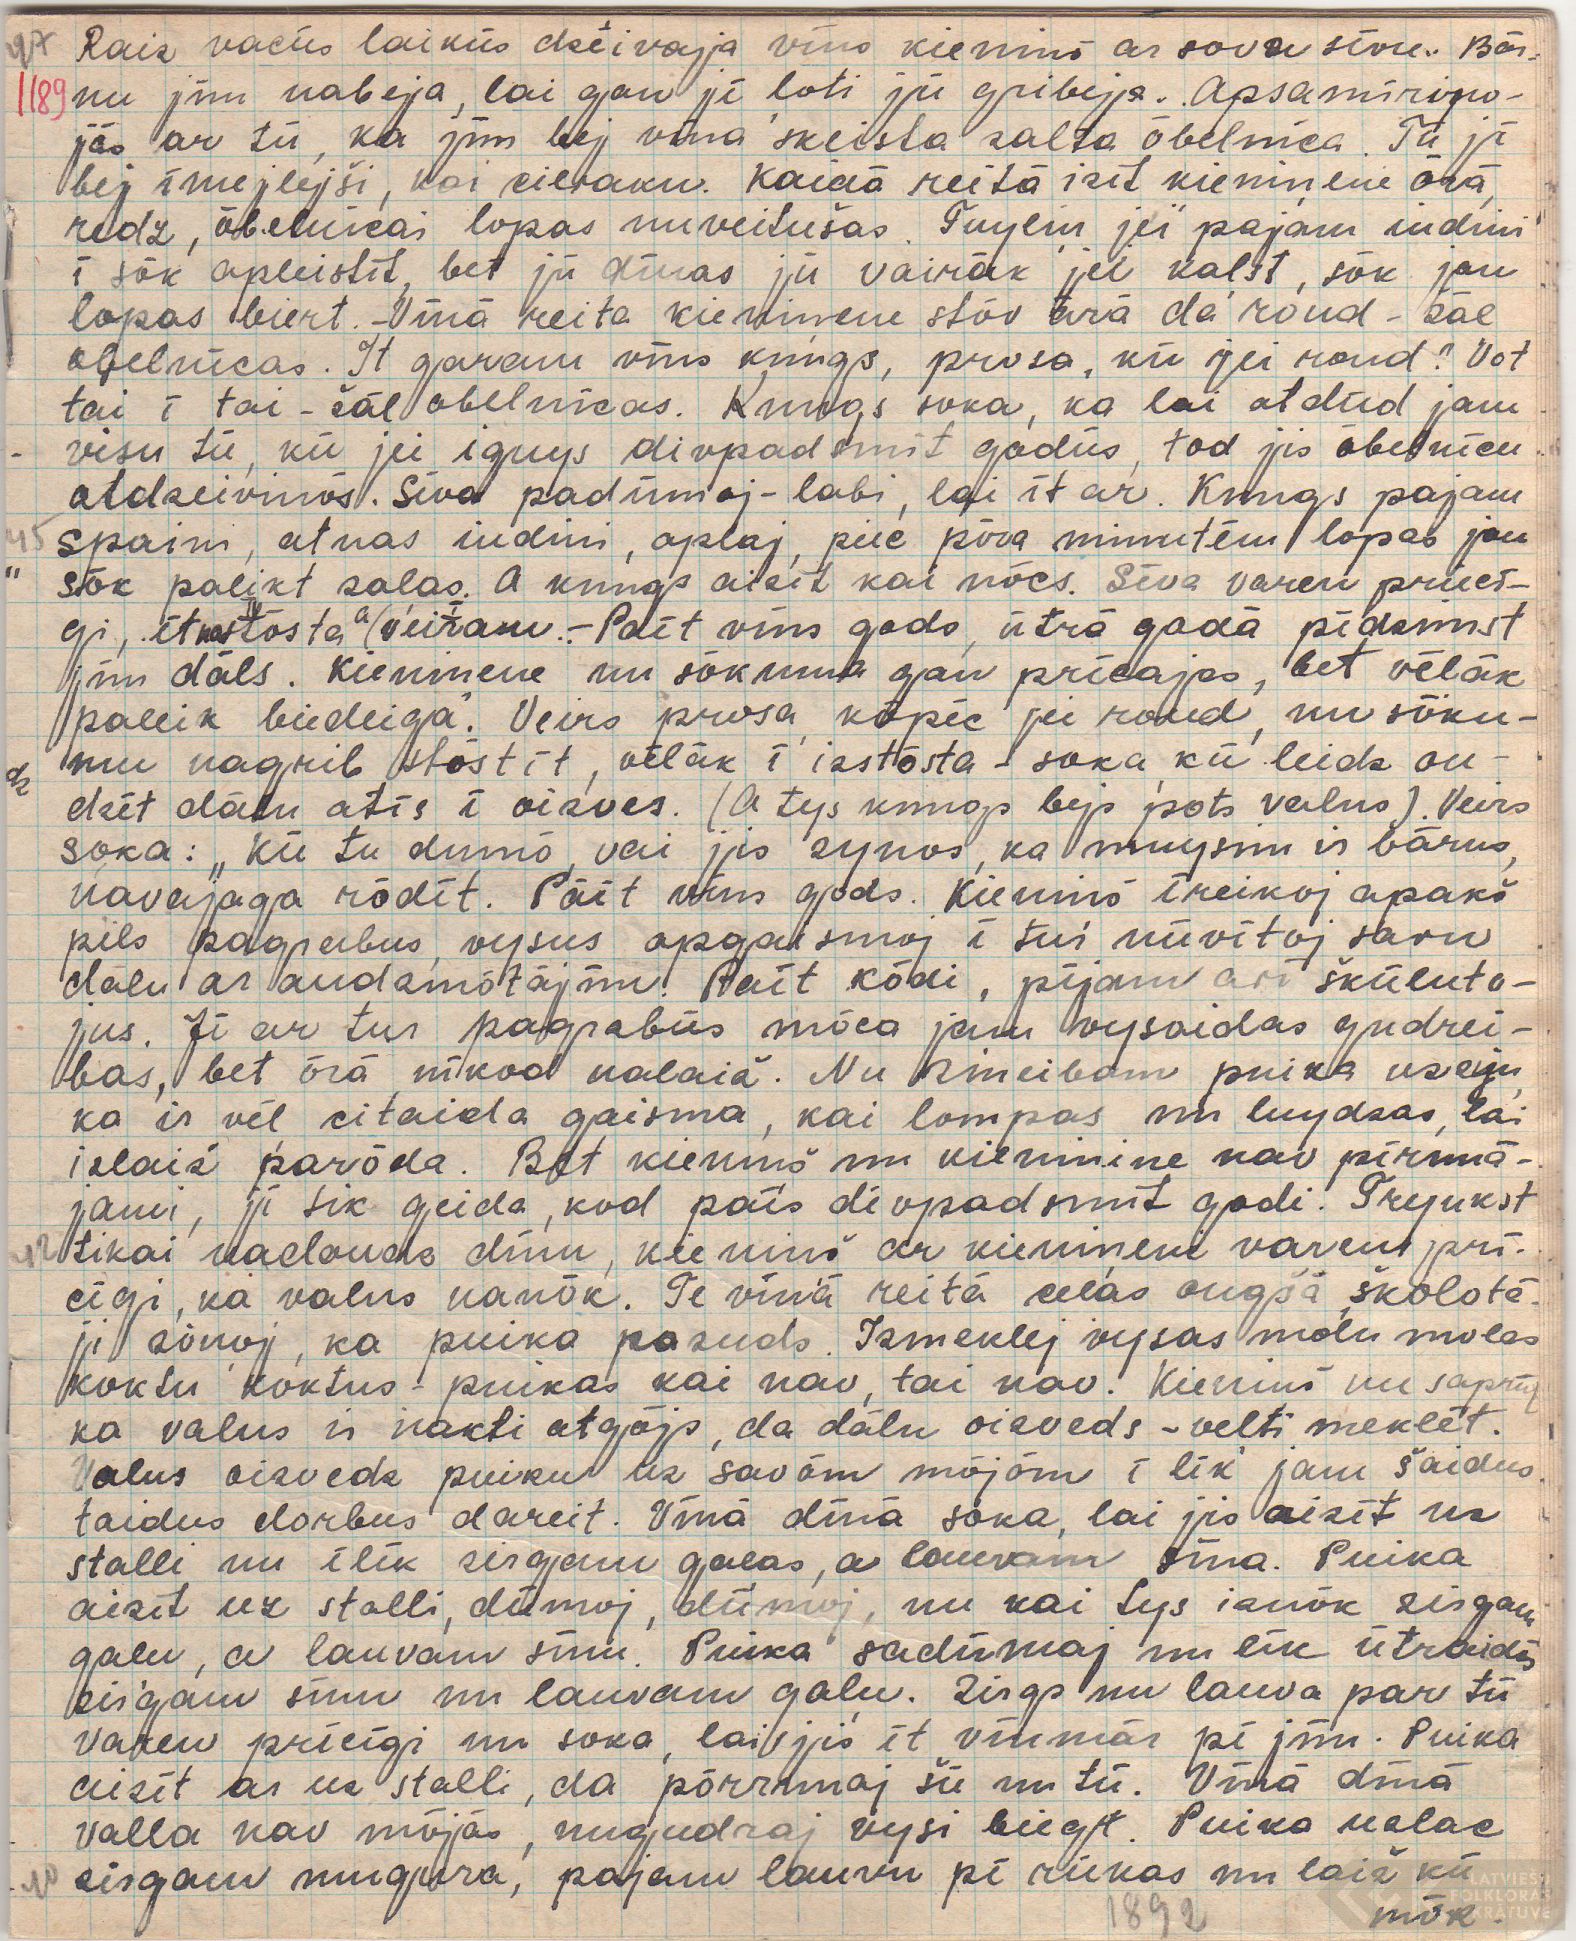 97 Raiz vacūs laikūs dzeivaja vīns kieniņš ar sovu sīvu. Bār-
1189 nu jim nabeja, lai gan ji loti jū gribeja. Apsamirino-
jās ar tū, ka jim bej vīna skeista zalta ōbelnīca. Tū ji
bej īmejlejši, kai cilvaku. Kaidā reitā izīt kieniņīne ōrā,
redz, ōbelnīcai lopas nuveitušas. Tuyleņ jei pajam iudini
ī sōk apleistīt, bet jū dīnas jū vairāk jei kalst, sōk jau
lopas biert. - Vīnā reita kieniņene stōv ōrā da raud - žāl
obelnīcas. It garam vīns kungs, prosa, kū jei raud? Vot
tai ī tai - žāl obelnīcas. Kungs soka, ka lai atdūd jam
visu tū, kū jei īguys divpadsmit godūs, tod jis ōbelnīcu
atdzeivinōs. Sīva padūmoj - labi, lai īt ar. Kungs pajam
45 spaini, atnas iudini, aplaj, piec pōra minutēm lopas jau
" sōk palikt zalas. A kungs aizīt kai nōcs. Sīva varen prīcī-
gi, īt stōsta veiram. - Paīt vīns gods, ūtrā godā pīdzimst
jim dāls. Kieniņene nu sōkuma gan prīcajas, bet vēlāk
paleik biedeiga. Veirs prosa, kōpēc jei raud, nu sōku-
mu nagrib stōstīt, vēlāk ī izstōsta - soka, kū leidz au-
dz dzīt dālu atīs ī aizves. (A tys kungs bejs pots valns). Veirs
soka: "Kū tu dumō, vai jis zynos, ka muysim ir bārns,
navajaga rōdīt. Pāīt vīns gods. Kieniņš īreikoj apakš
pils pagrabus, vysus apgaismoj ī tur nūvītoj savu
dālu ar audzinōtājim. Paīt kōdi, pījam ari škūluto-
jus. Jī ar tur pagrabūs mōca jam vysaidas gudrei-
bas, bet ōrā nikod nalaiž. Nu zineibom puika uzeju,
ka ir vēl citaida gaisma, kai lompas nu luydzas, lai
izlaiž parōda. Bet kieniņš nu kieniņine nav pīrunā-
jami, ji tik geida, kod paīs divpadsmit godi. Tryukst
12 tikai nadaudz dīnu, kieniņš ar kieniņeni varen prī-
cīgi, ka valns nanōk. Te vīnā reitā celas augšā, školotā-
ji zōnoj, ka puika pazuds. Izmeklej vysas molu molas
koktu koktus - puikas kai nav, tai nav. Kieniņš nu saprūt
ka valns ir nakti atgōjs, da dālu aizveds - velti meklēt.
Valns aizvedz puiku uz savōm mōjōm ī līk jam šaidus
taidus dorbus dareit. Vīnā dīnā soka, lai jis aizīt uz
stalli nu īlīk zirgam galas, a lauvam sīna. Puika
aizīt uz stalli, dūmoj, dūmoj, nu kai tys iznōk zirgam
galu, a lauvam sīnu. Puika sadūmaj nu līk ūtraidis
zirgam sīnu nu lauvam galu. Zirgs nu lauva par tū
varen prīcīgi nu soka, lai jis īt vīnmār pī jim. Puika
aizīt ar uz stalli, da pōrrunaj šū nu tū. Vīnā dīnā
valla nav mōjās, nugudraj vysi biegt. Puika uzlac
10 zirgam mugora, pajam lauvu pī rūkas nu laiž kū
mōk.
1892
LATVIEŠU FOLKLORAS KRĀTUVE